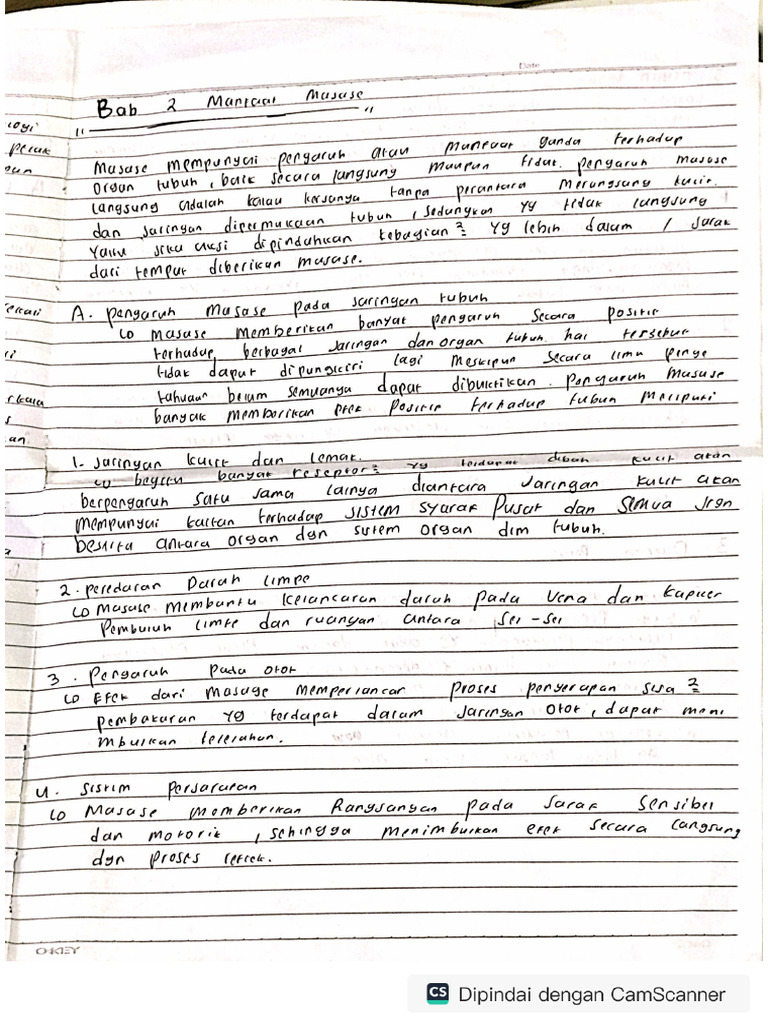 Date
Bab 2 Manfaat Masase
" "
Masase mempunyai pengaruh atau manfaat ganda terhadap
organ tubuh, baik secara langsung maupun tidak. pengaruh masase
langsung adalah kalau kerjanya tanpa perantara merangsang kulit
dan jaringan dipermukaan tubuh, sedangkan yg tidak langsung
yaitu jika aksi dipindahkan kebagian² yg lebih dalam / jarak
dari tempat diberikan masase.
A. pengaruh masase pada jaringan tubuh
masase memberikan banyak pengaruh secara positif
terhadap berbagai jaringan dan organ tubuh. hal tersebut
tidak dapat dipungkiri lagi meskipun secara ilmu penge
tahuan belum semuanya dapat dibuktikan. Pengaruh masase
banyak memberikan efek positif terhadap tubuh meliputi
1. Jaringan kulit dan lemak.
begitu banyak reseptor² yg terdapat dibah kulit akan
berpengaruh satu sama lainya diantara jaringan kulit akan
mempunyai kaitan terhadap sistem syaraf pusat dan semua jrgn
beserta antara organ dgn sistem organ dlm tubuh.
2. peredaran Darah limfe
masase membantu kelancaran darah pada vena dan kapiler
pembuluh limfe dan ruangan antara sel-sel
3. Pengaruh pada otot
Efek dari masage memperlancar proses penyerapan sisa²
pembakaran yg terdapat dalam jaringan otot, dapat meni
mbulkan kelelahan.
4. sistim persarafan
Masase memberikan Rangsangan pada saraf sensibel
dan motorik, sehingga menimbulkan efek secara langsung
dgn proses reflek.
OKEY
CS Dipindai dengan CamScanner